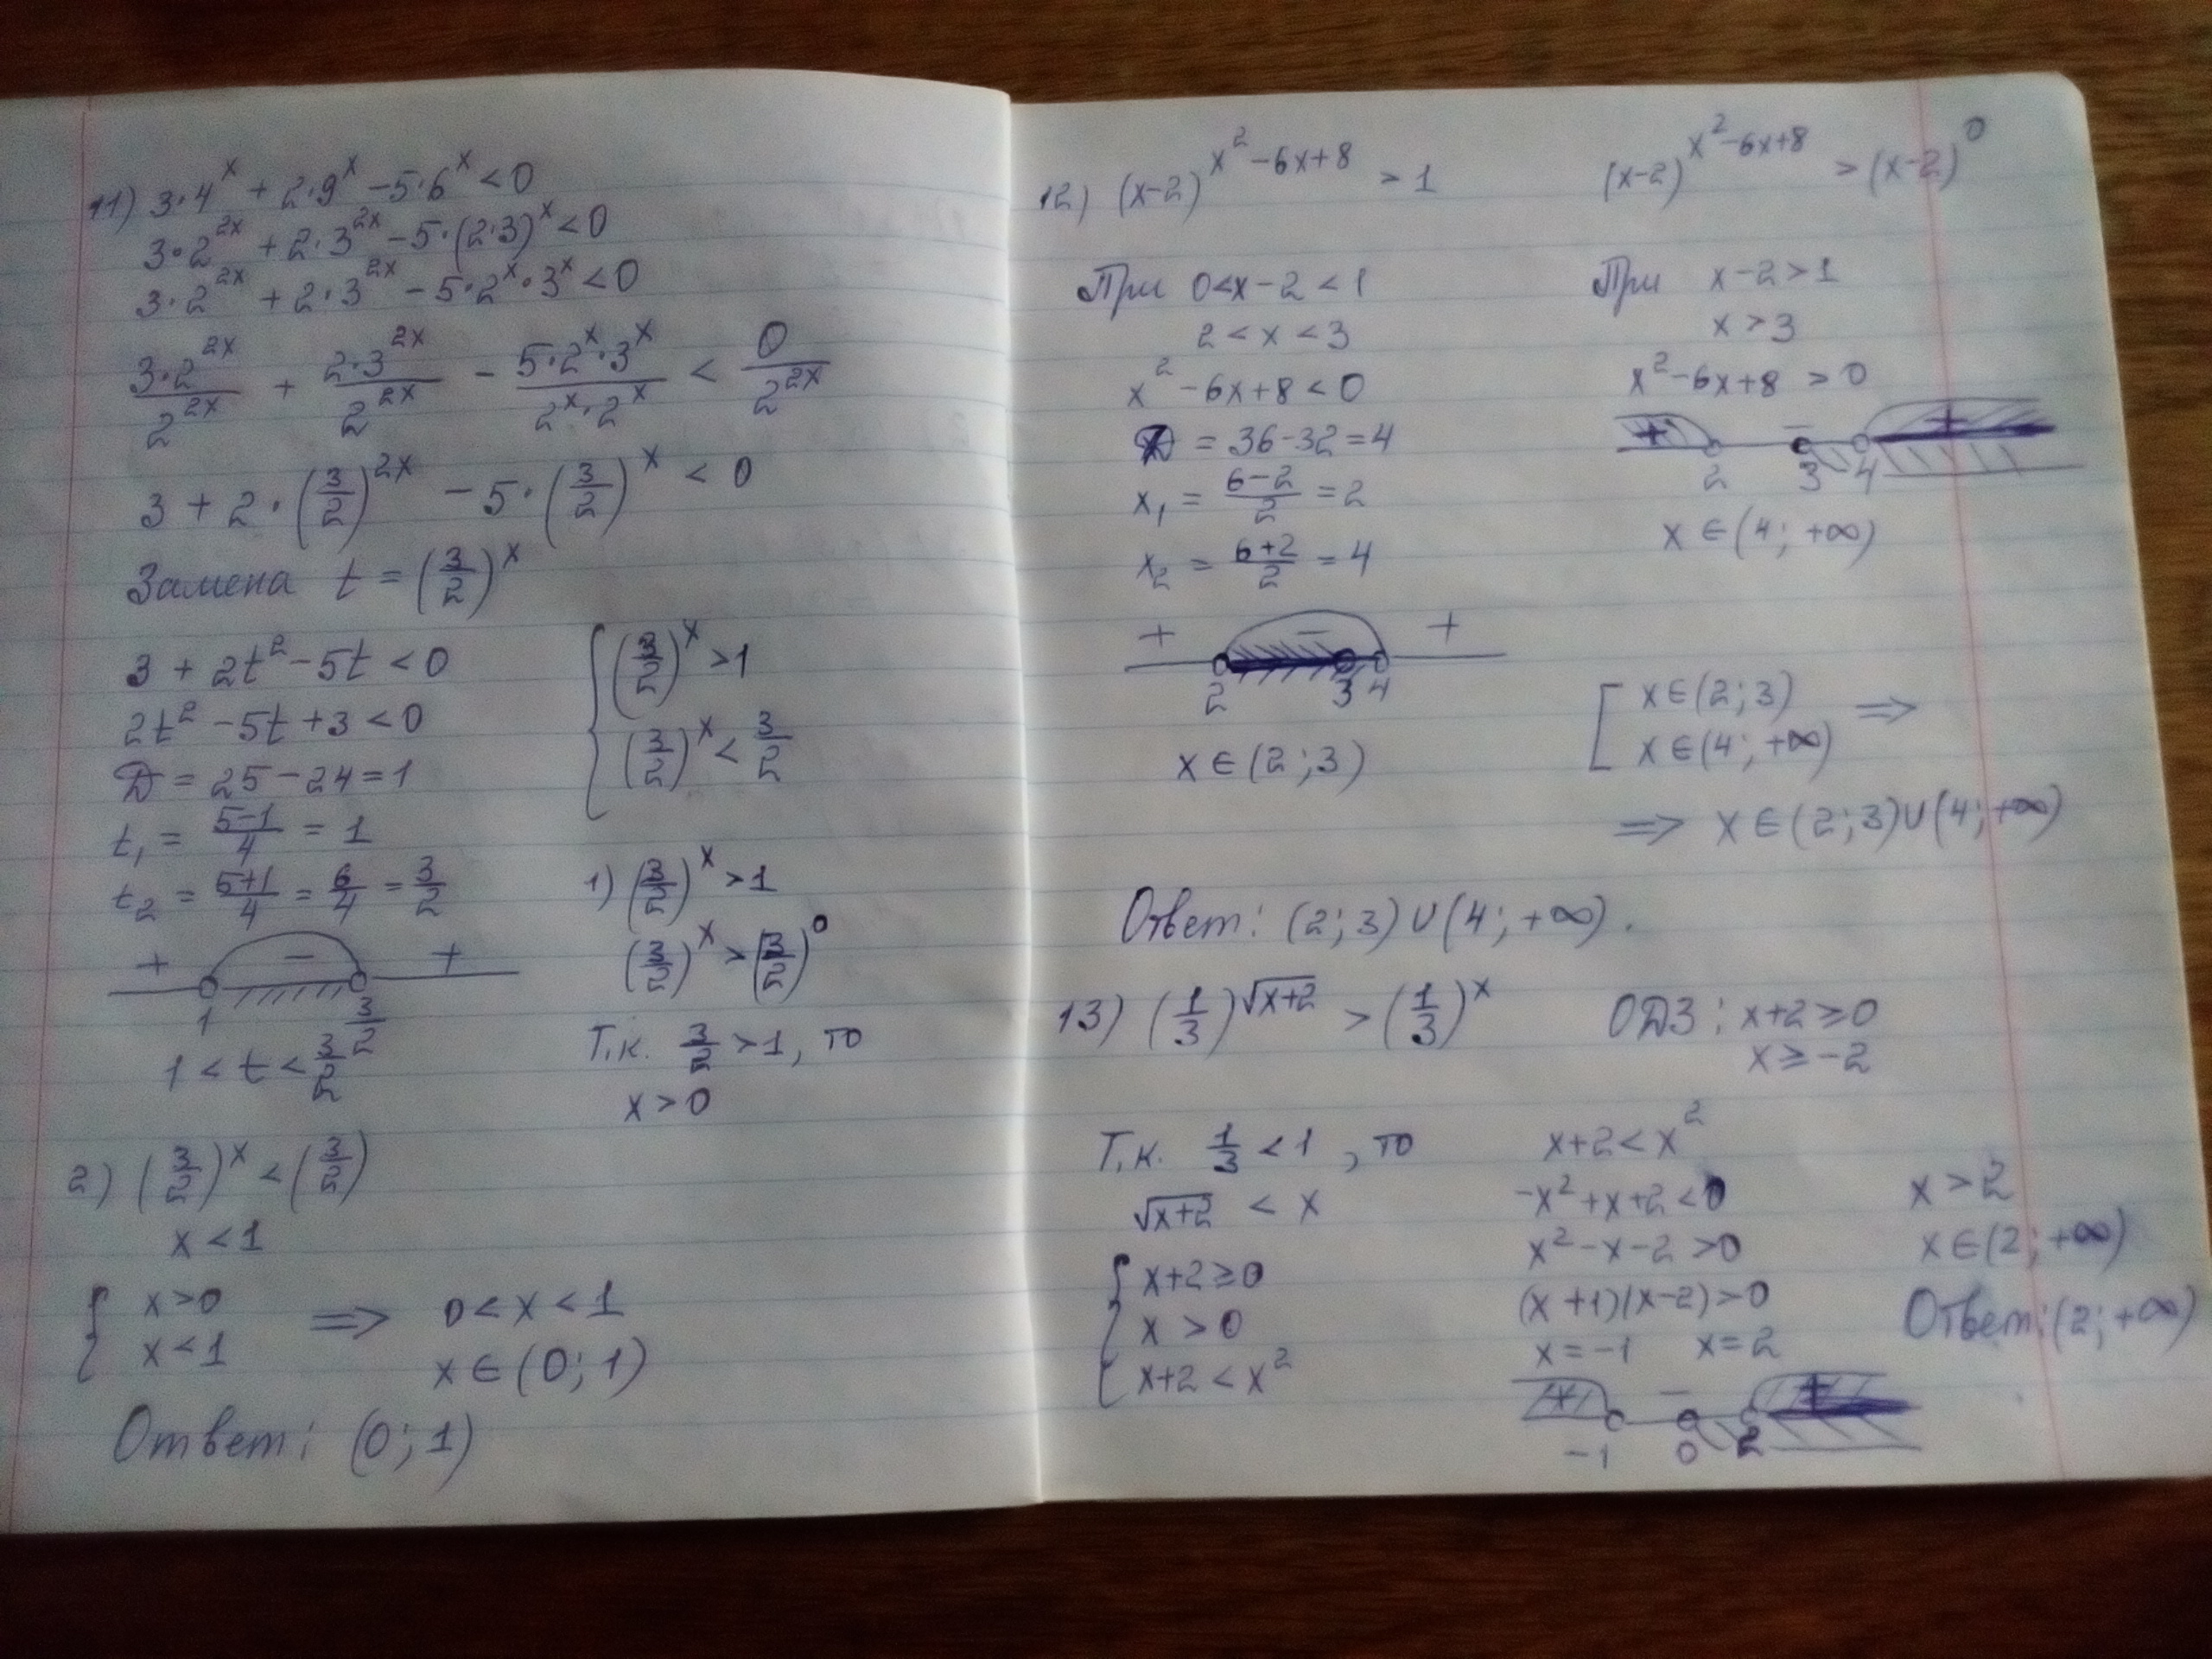 11) 3·4^x + 2·9^x − 5·6^x < 0
3·2^{2x} + 2·3^{2x} − 5·(2·3)^x < 0
3·2^{2x} + 2·3^{2x} − 5·2^x·3^x < 0
\frac{3·2^{2x}}{2^{2x}} + \frac{2·3^{2x}}{2^{2x}} − \frac{5·2^x·3^x}{2^x·2^x} < \frac{0}{2^{2x}}
3 + 2·(\frac{3}{2})^{2x} − 5·(\frac{3}{2})^x < 0
Замена t = (\frac{3}{2})^x
3 + 2t² − 5t < 0
2t² − 5t + 3 < 0
D = 25 − 24 = 1
t₁ = \frac{5−1}{4} = 1
t₂ = \frac{5+1}{4} = \frac{6}{4} = \frac{3}{2}
+ − +
1 \frac{3}{2}
1 < t < \frac{3}{2}
{ (\frac{3}{2})^x > 1
(\frac{3}{2})^x < \frac{3}{2}
1) (\frac{3}{2})^x > 1
(\frac{3}{2})^x > (\frac{3}{2})^0
Т.к. \frac{3}{2} > 1, то
x > 0
2) (\frac{3}{2})^x < (\frac{3}{2})
x < 1
{ x > 0
x < 1 ⇒ 0 < x < 1
x ∈ (0; 1)
Ответ: (0; 1)
12) (x−2)^{x²−6x+8} > 1
(x−2)^{x²−6x+8} > (x−2)^0
При 0 < x − 2 < 1
2 < x < 3
x² − 6x + 8 < 0
D = 36 − 32 = 4
x₁ = \frac{6−2}{2} = 2
x₂ = \frac{6+2}{2} = 4
+ − +
2 3 4
x ∈ (2; 3)
При x − 2 > 1
x > 3
x² − 6x + 8 > 0
+ − +
2 3 4
x ∈ (4; +∞)
[ x ∈ (2; 3)
x ∈ (4; +∞) ⇒
⇒ x ∈ (2; 3) ∪ (4; +∞)
Ответ: (2; 3) ∪ (4; +∞).
13) (\frac{1}{3})^{\sqrt{x+2}} > (\frac{1}{3})^x
ОДЗ: x+2 ≥ 0
x ≥ −2
Т.к. \frac{1}{3} < 1, то
\sqrt{x+2} < x
{ x+2 ≥ 0
x > 0
x+2 < x²
x+2 < x²
−x² + x + 2 < 0
x² − x − 2 > 0
(x+1)(x−2) > 0
x = −1 x = 2
+ − +
−1 0 2
x > 2
x ∈ (2; +∞)
Ответ: (2; +∞)